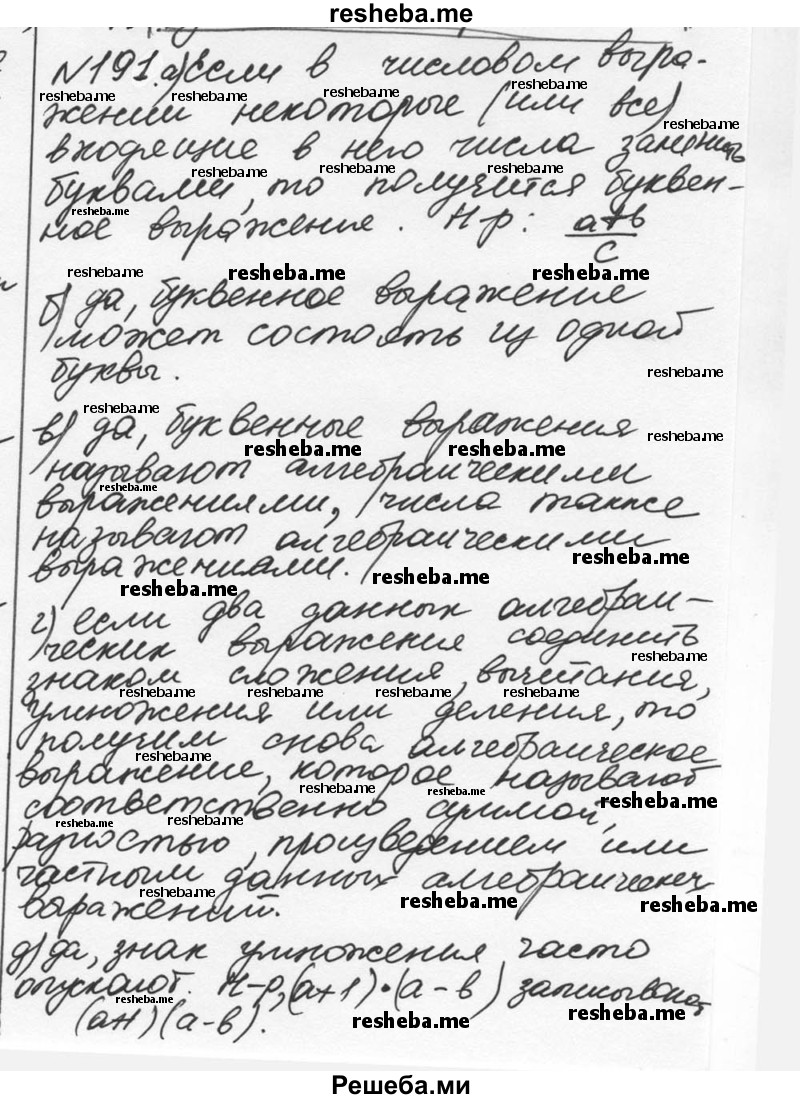 resheba.me
№191. а) Если в числовом выра-
жении некоторые (или все)
входящие в него числа заменить
буквами, то получится буквен-
ное выражение. Н-р: a+b
c
б) да, буквенное выражение
может состоять из одной
буквы.
в) да, буквенные выражения
называют алгебраическими
выражениями, числа также
называют алгебраическими
выражениями.
г) если два данных алгебраи-
ческих выражения соединить
знаком сложения, вычитания,
умножения или деления, то
получим снова алгебраическое
выражение, которое называют
соответственно суммой,
разностью, произведением или
частным данных алгебраических
выражений.
д) да, знак умножения часто
опускают. Н-р, (a+1)•(a-b) записывают
(a+1)(a-b).
Решеба.ми